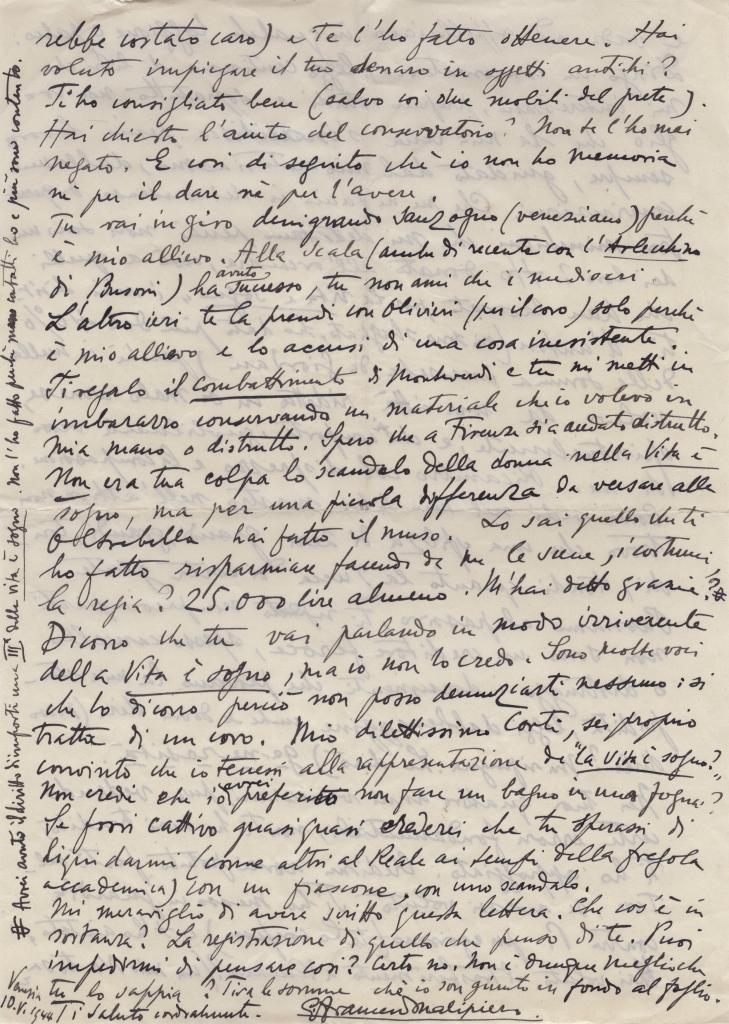 rebbe costato caro) e te l'ho fatto ottenere. Hai
voluto impiegare il tuo denaro in oggetti antichi?
Ti ho consigliato bene (salvo coi due mobili del prete).
Hai chiesto l'aiuto del conservatorio? Non te l'ho mai
negato. E così di seguito chè io non ho memoria
nè per il dare nè per l'avere.
Tu vai in giro denigrando Sanzogno (veneziano) perchè
è mio allievo. Alla Scala (anche di recente con l'Arlecchino
di Busoni) ha avuto successo, tu non ami che i mediocri.
L'altro ieri te la prendi con Olivieri (per il coro) solo perchè
è mio allievo e lo accusi di una cosa inesistente.
Ti regalo il Combattimento di Monteverdi e tu mi metti in
imbarazzo conservando un materiale che io volevo in
mia mano o distrutto. Spero che a Firenze sia andato distrutto.
Non era tua colpa lo scandalo della donna nella Vita è
sogno, ma per una piccola differenza da versare alla
Oltrabella hai fatto il muso. Lo sai quello che ti
ho fatto risparmiare facendo da me le scene, i costumi,
la regia? 25.000 lire almeno. M'hai detto grazie? #
Dicono che tu vai parlando in modo irriverente
della Vita è sogno, ma io non lo credo. Sono molte voci
che lo dicono perciò non posso denunziarti nessuno: si
tratta di un coro. Mio dilettissimo Corti, sei proprio
convinto che io tenessi alla rappresentazione de "La Vita è sogno"?
Non credi che io avrei preferito non fare un bagno in una fogna?
Se fossi cattivo quasi quasi crederei che tu sperassi di
liquidarmi (come altri al Reale ai tempi della fregola
accademica) con un fiascone, con uno scandalo.
Mi meraviglio di avere scritto questa lettera. Che cos'è in
sostanza? La registrazione di quello che penso di te. Puoi
impedirmi di pensare così? Certo no. Non è dunque meglio che
tu lo sappia? Tira le somme chè io son giunto in fondo al foglio.
Ti saluto cordialmente. GFrancesco Malipiero
Venezia
10.VI.1944
# Avrei avuto il diritto di importi una IIIª della vita è sogno. Non l'ho fatto perchè meno contatti ho e più sono contento.